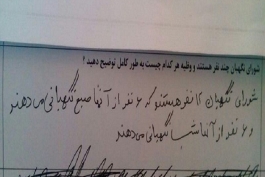 شورای نگهبان چند نفر هستند و وظیفه هر کدام چیست به طور کامل توضیح دهید ؟
شورای نگهبان ۱۲ نفر هستند که ۶ نفر از آنها صبح نگهبانی می دهند
و ۶ نفر از آنها شب نگهبانی می دهند